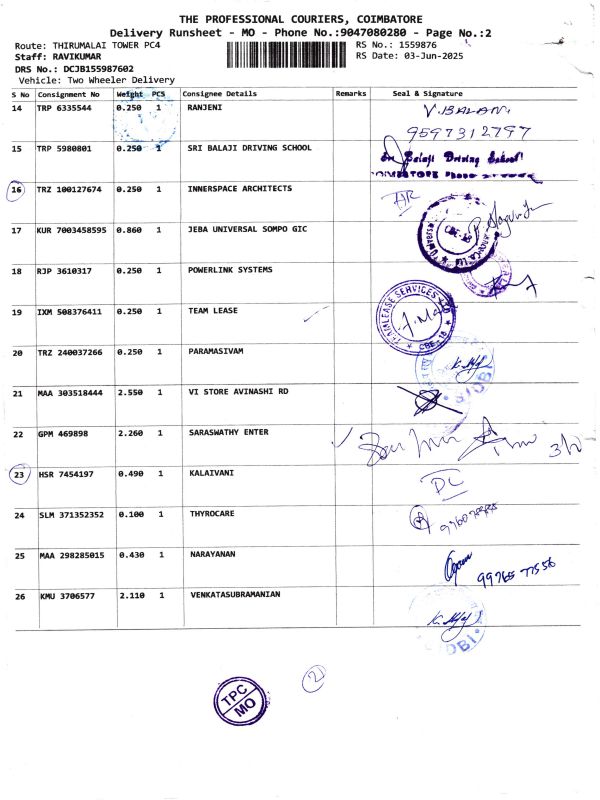 THE PROFESSIONAL COURIERS, COIMBATORE
Delivery Runsheet - MO - Phone No.:9047080280 - Page No.:2
Route: THIRUMALAI TOWER PC4 RS No.: 1559876
Staff: RAVIKUMAR RS Date: 03-Jun-2025
DRS No.: DCJB155987602
Vehicle: Two Wheeler Delivery
S No Consignment No Weight PCS Consignee Details Remarks Seal & Signature
14 TRP 6335544 0.250 1 RANJENI V.BALAN
9597312797
15 TRP 5980801 0.250 1 SRI BALAJI DRIVING SCHOOL Sri Balaji Driving School
COIMBATORE
16 TRZ 100127674 0.250 1 INNERSPACE ARCHITECTS
17 KUR 7003458595 0.860 1 JEBA UNIVERSAL SOMPO GIC CBE-18
18 RJP 3610317 0.250 1 POWERLINK SYSTEMS
19 IXM 508376411 0.250 1 TEAM LEASE TEAMLEASE SERVICES CBE-18
20 TRZ 240037266 0.250 1 PARAMASIVAM
21 MAA 303518444 2.550 1 VI STORE AVINASHI RD
22 GPM 469898 2.260 1 SARASWATHY ENTER
23 HSR 7454197 0.490 1 KALAIVANI DC
24 SLM 371352352 0.100 1 THYROCARE
25 MAA 298285015 0.430 1 NARAYANAN 99765 77556
26 KMU 3706577 2.110 1 VENKATASUBRAMANIAN
2
TPC
MO